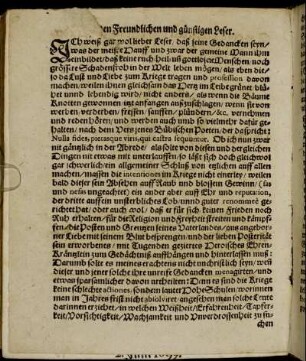 den Freundlichen und günstigen Leser.
Ich weiß gar wol lieber Leser, daß seine Gedancken seyn/
was der meiste Hauff und zwar der gemeine Mann ihm
einbildet/ daß keine ruch heilloß gottlosere Menschen noch
grössere Schadenfrohen in der Welt leben mögen/ als eben die/
so da Lust und Liebe zum Kriege tragen und profession davort
machen/ weilen ihnen gleichsam das Hertz im Leibe grünet blü-
het unnd lebendig wird/ nicht anders/ als wenn die Bäume
Knotten gewonnen und anfangen außzuschlagen/ wenn sie von
werben/ verderben/ fressen/ sauffen/ plündern/ &c. vernehmen
und reden hören/ und werden auch umb so vielmehr dafür ge-
halten/ nach dem Vers jenes Bäbstischen Poeten/ der da spricht:
Nulla fides, pietasque viris, qui castra sequuntur. Ob ich nun zwar
nit gäntzlich in der Abrede/ als solte von diesen und der gleichen
Dingen nit etwas mit unterlauffen/ so läßt sich doch gleichwol
gar schwerlich ein allgemeiner Schluß von etzlichen auff allen
machen/ massen die intentionen im Kriege nicht einerley/ weilen
bald dieser sein Absehen auff Raub und blossen Gewinn/ (un-
und nichts ungeachtet) ein ander aber auff Ehr und reputation,
der dritte auff ein unsterbliches Lob unnd guter renommée ge-
richtet hat/ oder auch wol/ daß er für sich keinen Frieden noch
Ruh erhalten/ für die Religion und Freyheit streiten und kämpf-
fen/ die Posten und Grentzen seines Vaterlandes/ aus angebor-
ner Liebe mit seinem Blut besprengen/ und der lieben Posterität
sein erworbenes/ mit Tugenden geziertes Heroisches Ehren-
Kräntzlein zum Gedächtnüß auffhängen und hinterlassen muß:
Darumb solte es meines erachtens nicht undienstlich seyn/ weñ
dieser und jener solche ihre unreife Gedancken menagirten/ und
etwas sparsamlicher davon urtheilten: Denn es sind die Kriege
keine schlechte actiones, sondern lauter Hohe Schulen/ worinnen
man in Jahres frist nicht absolviret/ angesehen man solche Leute
darinnen erziehet/ in welchen Weißheit/ Erfahrenheit/ Tapfer-
keit/ Vorsichtigkeit/ Wachsamkeit und Unverdrossenheit zu su-
chen